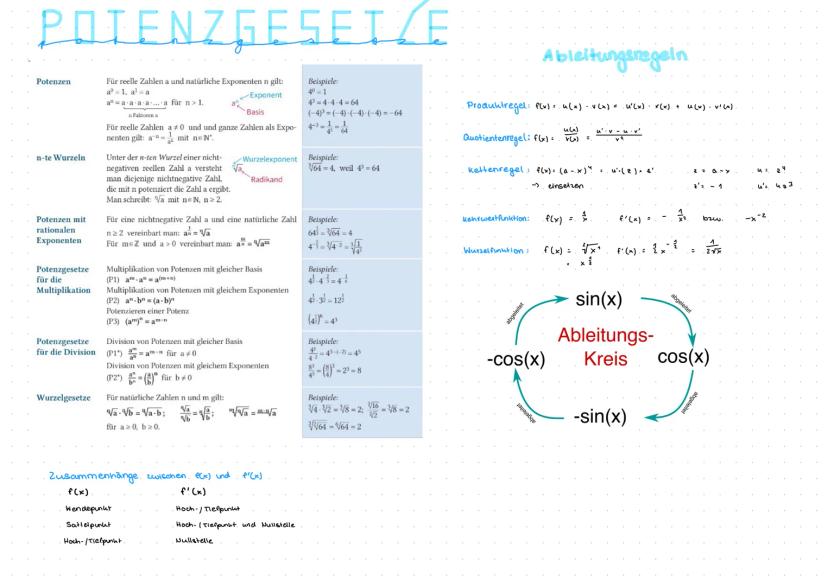 POTENZGESETZE
potenzgesetze
Potenzen
Für reelle Zahlen a und natürliche Exponenten n gilt:
a⁰ = 1, a¹ = a
aⁿ = a · a · a · a · ... · a für n > 1.
n Faktoren a
aⁿ Exponent
Basis
Für reelle Zahlen a ≠ 0 und und ganze Zahlen als Expo-
nenten gilt: a⁻ⁿ = 1/aⁿ mit n ∈ ℕ*.
Beispiele:
4⁰ = 1
4³ = 4 · 4 · 4 = 64
(−4)³ = (−4) · (−4) · (−4) = −64
4⁻³ = 1/4³ = 1/64
n-te Wurzeln
Unter der n-ten Wurzel einer nicht-
negativen reellen Zahl a versteht
man diejenige nichtnegative Zahl,
die mit n potenziert die Zahl a ergibt.
Man schreibt: ⁿ√a mit n ∈ ℕ, n ≥ 2.
Wurzelexponent
ⁿ√a
Radikand
Beispiele:
³√64 = 4, weil 4³ = 64
Potenzen mit
rationalen
Exponenten
Für eine nichtnegative Zahl a und eine natürliche Zahl
n ≥ 2 vereinbart man: a^(1/n) = ⁿ√a
Für m ∈ ℤ und a > 0 vereinbart man: a^(m/n) = ⁿ√aᵐ
Beispiele:
64^(1/3) = ³√64 = 4
Potenzgesetze
für die
Multiplikation
Multiplikation von Potenzen mit gleicher Basis
(P1) aᵐ · aⁿ = a^(m+n)
Multiplikation von Potenzen mit gleichem Exponenten
(P2) aⁿ · bⁿ = (a · b)ⁿ
Potenzieren einer Potenz
(P3) (aᵐ)ⁿ = a^(m·n)
Beispiele:
4^(1/2) · 3^(1/2) = 12^(1/2)
Potenzgesetze
für die Division
Division von Potenzen mit gleicher Basis
(P1*) aᵐ/aⁿ = a^(m−n) für a ≠ 0
Division von Potenzen mit gleichem Exponenten
(P2*) aⁿ/bⁿ = (a/b)ⁿ für b ≠ 0
Beispiele:
4³/4⁻² = 4^(3−(−2)) = 4⁵
8³/4³ = (8/4)³ = 2³ = 8
Wurzelgesetze
Für natürliche Zahlen n und m gilt:
ⁿ√a · ⁿ√b = ⁿ√(a · b); ⁿ√a/ⁿ√b = ⁿ√(a/b); ᵐ√(ⁿ√a) = ᵐ·ⁿ√a
für a ≥ 0, b ≥ 0.
Beispiele:
³√4 · ³√2 = ³√8 = 2; ³√16/³√2 = ³√8 = 2
Zusammenhänge zwischen f(x) und f'(x)
f(x) f'(x)
Wendepunkt Hoch-/Tiefpunkt
Sattelpunkt Hoch-/Tiefpunkt und Nullstelle
Hoch-/Tiefpunkt Nullstelle
Ableitungsregeln
Produktregel: f(x) = u(x) · v(x) = u'(x) · v(x) + u(x) · v'(x)
Quotientenregel: f(x) = u(x)/v(x) = (u' · v − u · v')/v²
Kettenregel: f(x) = (a − x)⁴ = u'(z) · z' z = a − x u = z⁴
→ einsetzen z' = −1 u' = 4z³
Kehrwertfunktion: f(x) = 1/x f'(x) = − 1/x² bzw. −x⁻²
Wurzelfunktion: f(x) = ²√x¹ f'(x) = ½ x^(−½) = 1/(2√x)
= x^½
sin(x)
abgeleitet
abgeleitet
Ableitungs-
Kreis
-cos(x)
cos(x)
abgeleitet
abgeleitet
-sin(x)